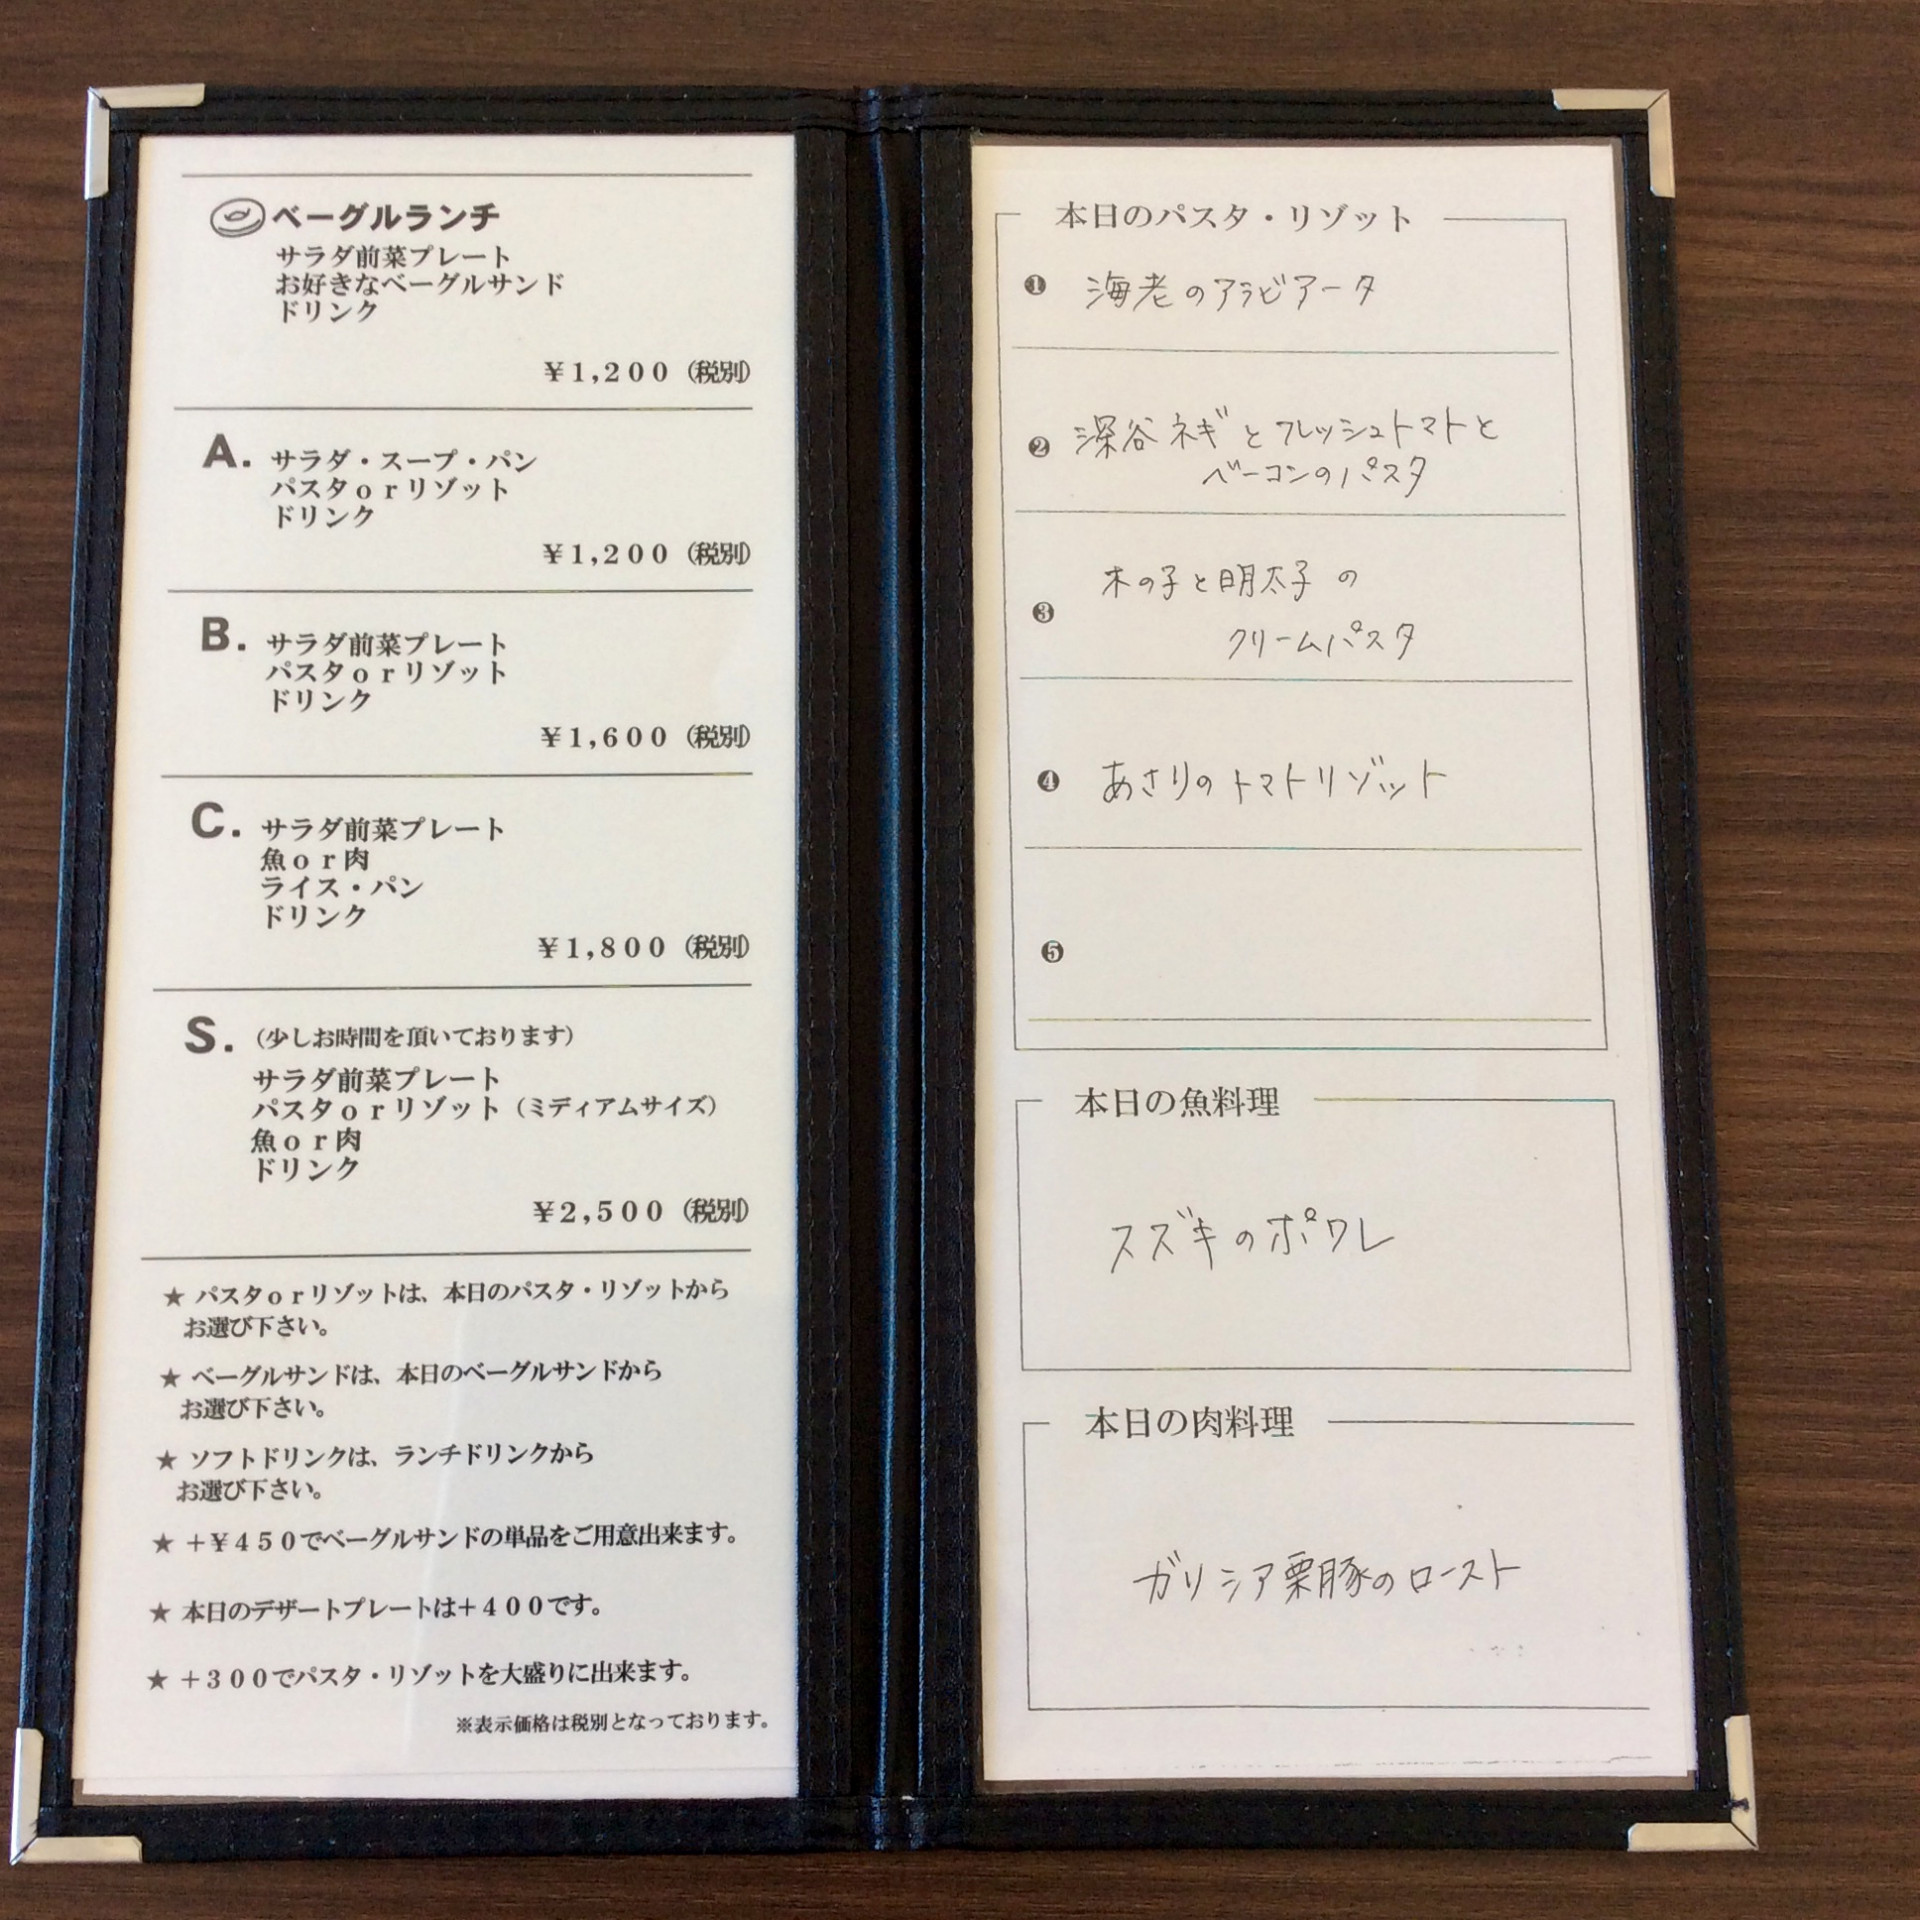 ベーグルランチ
サラダ前菜プレート
お好きなベーグルサンド
ドリンク
¥1,200(税別)
A. サラダ・スープ・パン
パスタorリゾット
ドリンク
¥1,200(税別)
B. サラダ前菜プレート
パスタorリゾット
ドリンク
¥1,600(税別)
C. サラダ前菜プレート
魚or肉
ライス・パン
ドリンク
¥1,800(税別)
S.(少しお時間を頂いております)
サラダ前菜プレート
パスタorリゾット(ミディアムサイズ)
魚or肉
ドリンク
¥2,500(税別)
★ パスタorリゾットは、本日のパスタ・リゾットから
お選び下さい。
★ ベーグルサンドは、本日のベーグルサンドから
お選び下さい。
★ ソフトドリンクは、ランチドリンクから
お選び下さい。
★ +¥450でベーグルサンドの単品をご用意出来ます。
★ 本日のデザートプレートは+400です。
★ +300でパスタ・リゾットを大盛りに出来ます。
※表示価格は税別となっております。
本日のパスタ・リゾット
❶ 海老のアラビアータ
❷ 深谷ネギとフレッシュトマトと
ベーコンのパスタ
❸ 木の子と明太子の
クリームパスタ
❹ あさりのトマトリゾット
❺
本日の魚料理
スズキのポワレ
本日の肉料理
ガリシア栗豚のロースト